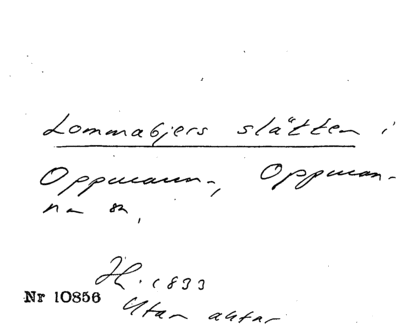 Lommabjers slätten i
Oppmann-, Oppman-
na sn,
H. 1833
Nr 10856
Utan akter